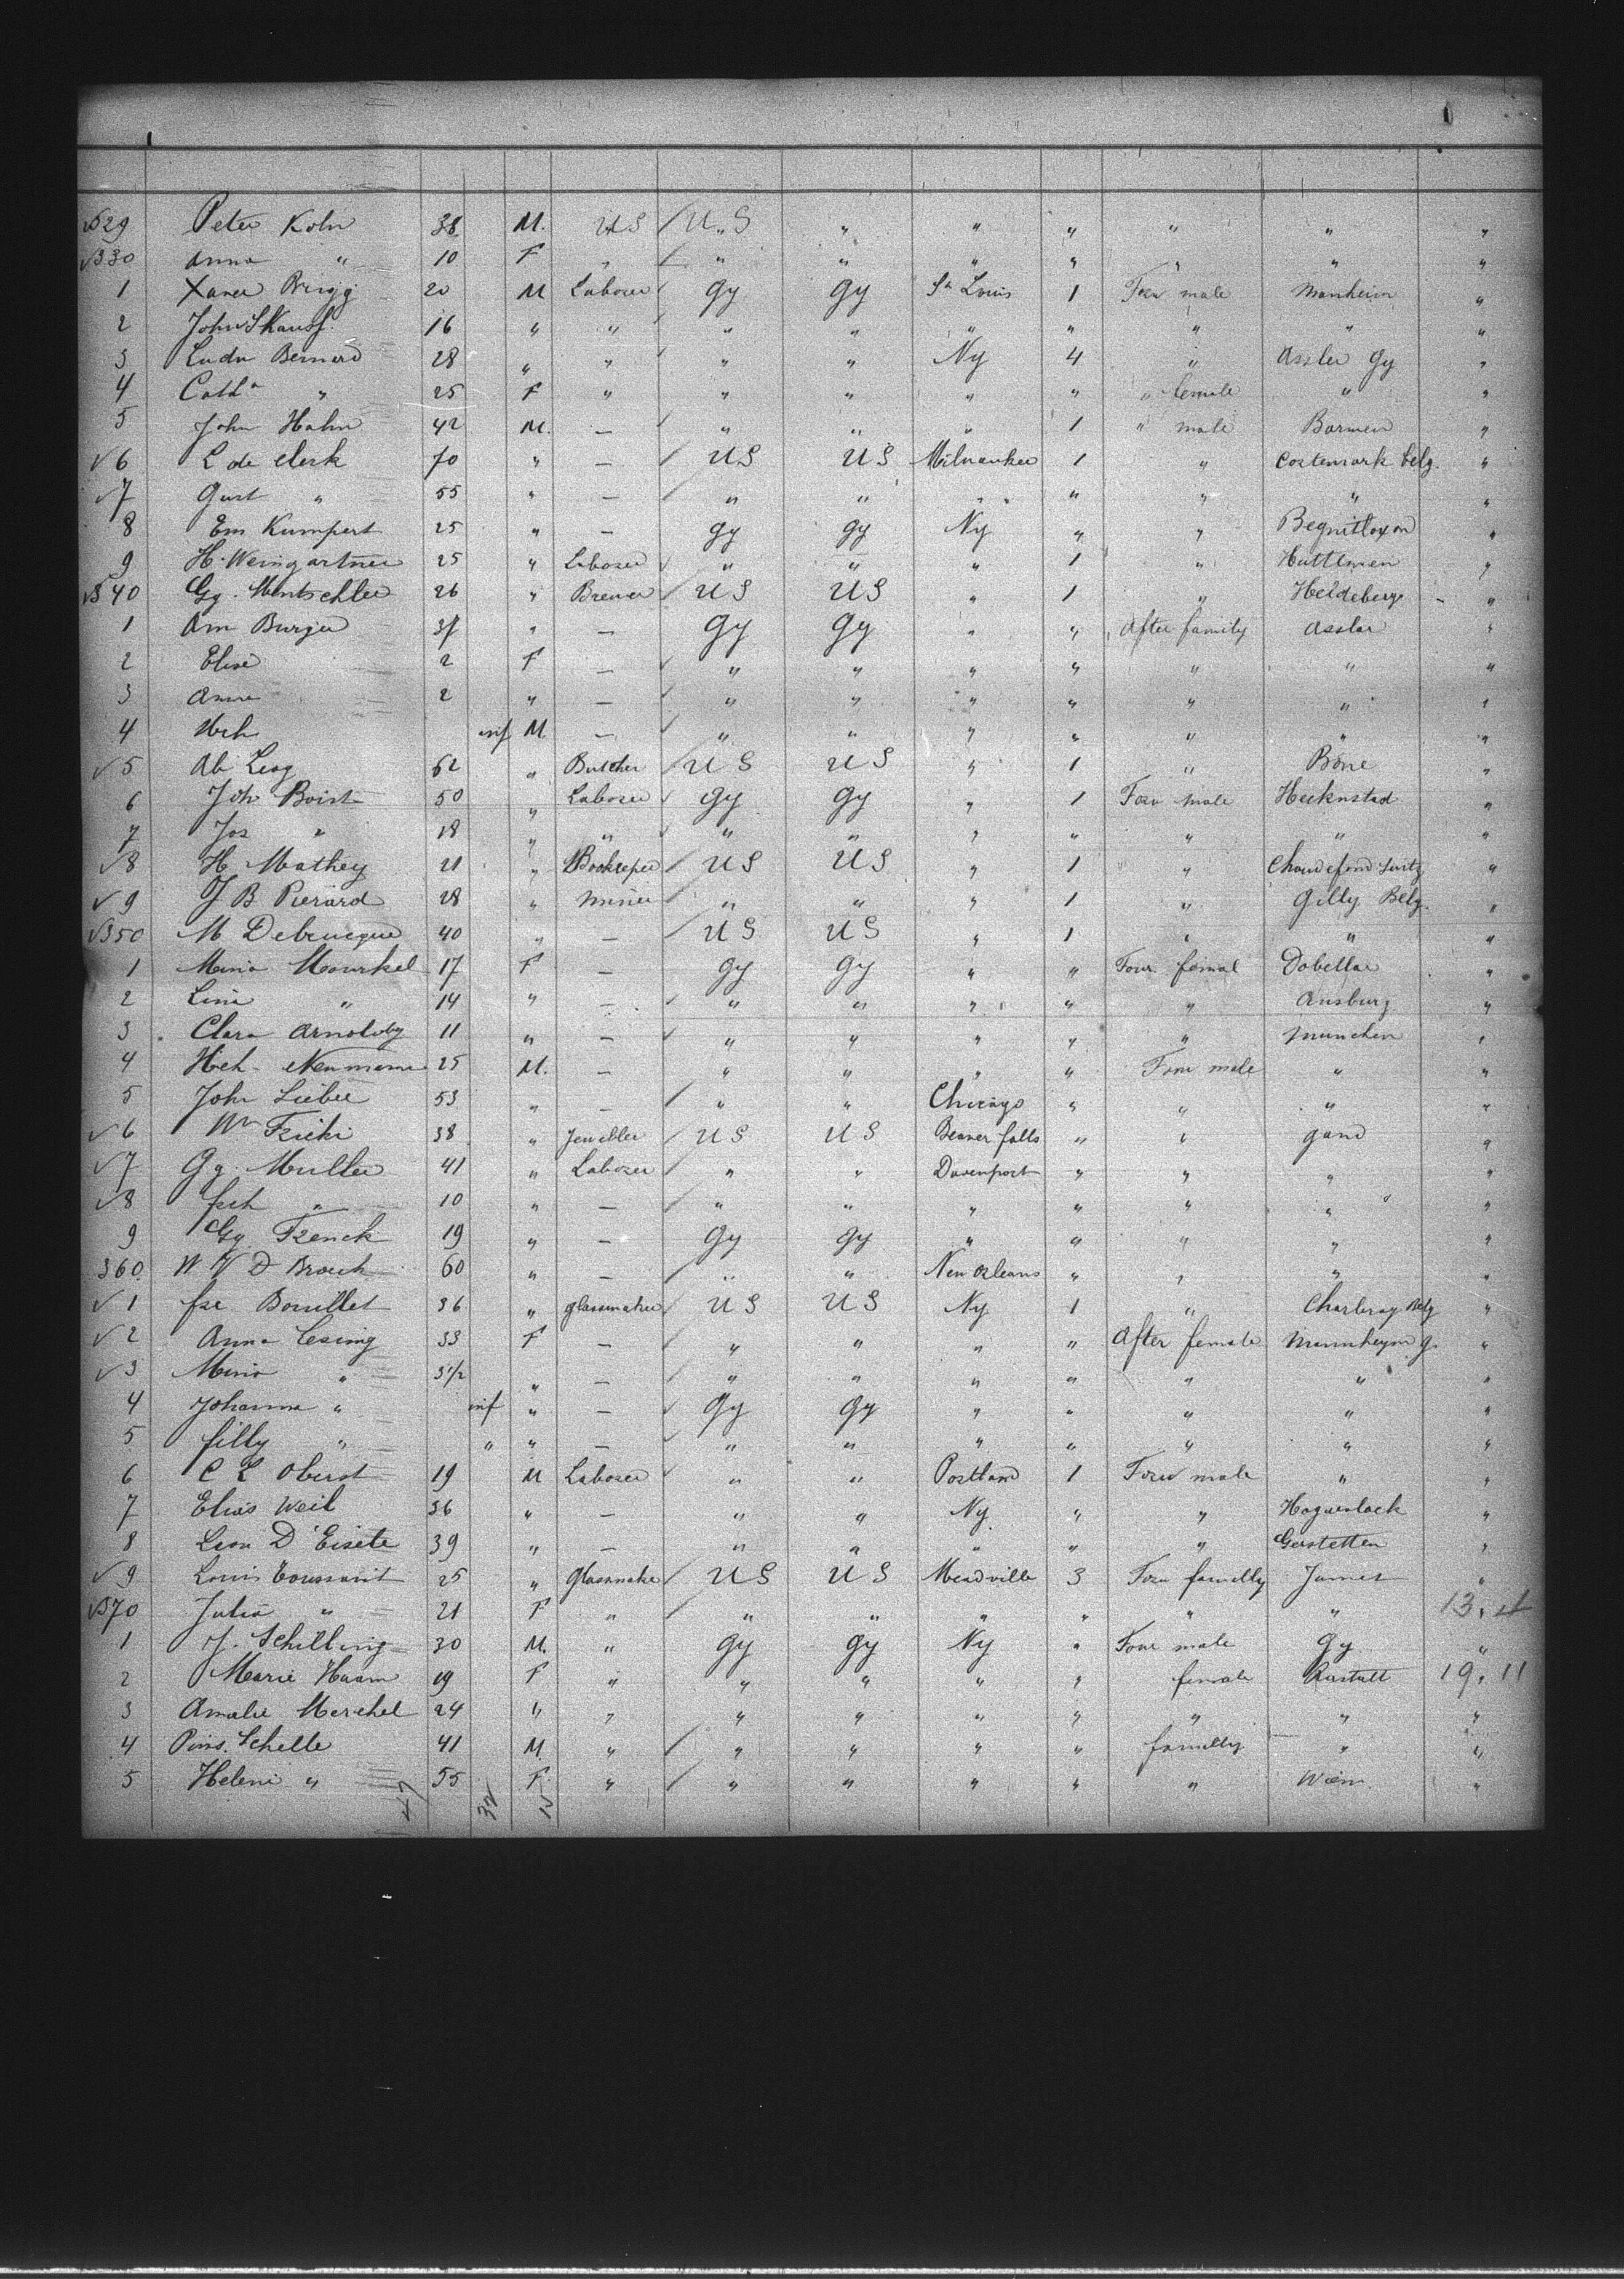 √529 Peter Kohn 38 M. US / U.S " " " " " "
√530 Anna " 10 F " / " " " " " " "
1 Xaver Bringg 20 M Laborer Gy Gy St Louis 1 Forw male Manheim "
2 John 16 " " " " " " " " "
3 Ludw Bernard 28 " " " " Ny 4 " Assler Gy "
4 Cath " 25 F " " " " " " female " "
5 John Hahn 42 M. — " " " 1 " male Barmen "
√6 L de Clerk 70 " — / US US Milwaukee 1 " Cortemark Belg. "
√7 Gust " 55 " — / " " " " " " "
8 Em Kumpert 25 " — Gy Gy Ny " " "
9 H. Weingartner 25 " Laborer √ " " " 1 " Huttlmen "
√540 Gg. Mentschler 26 " Brewer / US US " 1 " Heldeberge "
1 Am Burger 37 " — Gy Gy " " After family Asslar "
2 Elise 2 F — √ " " " " " " "
3 Anna 2 " — √ " " " " " " "
4 Hch inf M — √ " " " " " " "
√5 Ab Levy 62 " Butcher / US US " 1 " Bone "
6 Joh Boist 50 " Laborer √ Gy Gy " 1 Forw male Hecknstad "
7 Jos " 18 " " √ " " " " " " "
√8 H Mathey 21 " Bookeeper / US US " 1 " Chaudefond Switz "
√9 J B Pierard 28 " Miner / " " " 1 " Gilly Belg. "
√350 M Debrucque 40 " — / US US " 1 " " "
1 Maria Mourkel 17 F — Gy Gy " " Forw. femal Dobellar "
2 Lina " 14 " — √ " " " " " Ausburg "
3 Clara Arnoldy 11 " — √ " " " " " Munchen "
4 Hch Neumann 25 M. — " " " " Forw male " "
5 John Lieber 53 " — / " " Chicago " " " "
√6 Wm Fricki 38 " Jeweller / US US Beaver falls " " Gand "
√7 Gg Muller 41 " Laborer / " " Davenport " " " "
√8 frch " 10 " — / " " " " " " "
9 Gg Frenck 19 " — Gy Gy " " " " "
360 W V D Brouck 60 " — / " " New Orleans " " " "
√1 fse Bouillet 36 " glassmaker / US US Ny 1 " Charleroy Belg "
√2 Anna Lesing 33 F — / " " " " After female Mannheym g. "
√3 Maria " 3 1/2 " — / " " " " " " "
4 Johanna " inf " — √ Gy Gy " " " " "
5 filly " " " — √ " " " " " " "
6 C L Oberst 19 M Laborer √ " " Portland 1 Forw male " "
7 Elias Weil 36 " — " " Ny. " " "
8 Leon D'Eisete 39 " — " " " " " Gerstetten "
√9 Louis Toussaint 25 " Glassmaker / US US Meadville 3 Forw familly Jumet "
√370 Julia " 21 F " / " " " " " " 13. 4
1 J. Schilling 30 M. " Gy Gy Ny " Forw male Gy "
2 Marie Haam 19 F " " " " " female Rastatt 19. 11
3 Amalie Merchel 24 " " " " " " " " "
4 Pins. Schelle 41 M. " / " " " " familly " "
5 Heleni " 55 F. " / " " " " " Wien. "
47 32 15